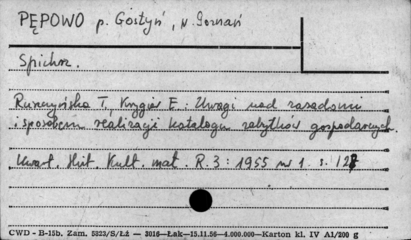 PĘPOWO p. Gostyń, w. Poznań
Spichrz.
Ruszczyńska T., Krygier E.: Uwagi nad zasadami
i sposobem realizacji katalogu zabytków gospodarczych.
Kwart. Hist. Kult. mat. R.3: 1955 nr 1. s. 127
CWD - B-15b. Zam. 5823/S/Łż — 3016—Łak—15.11.56—4.000.000—Karton kl. IV A1/200 g